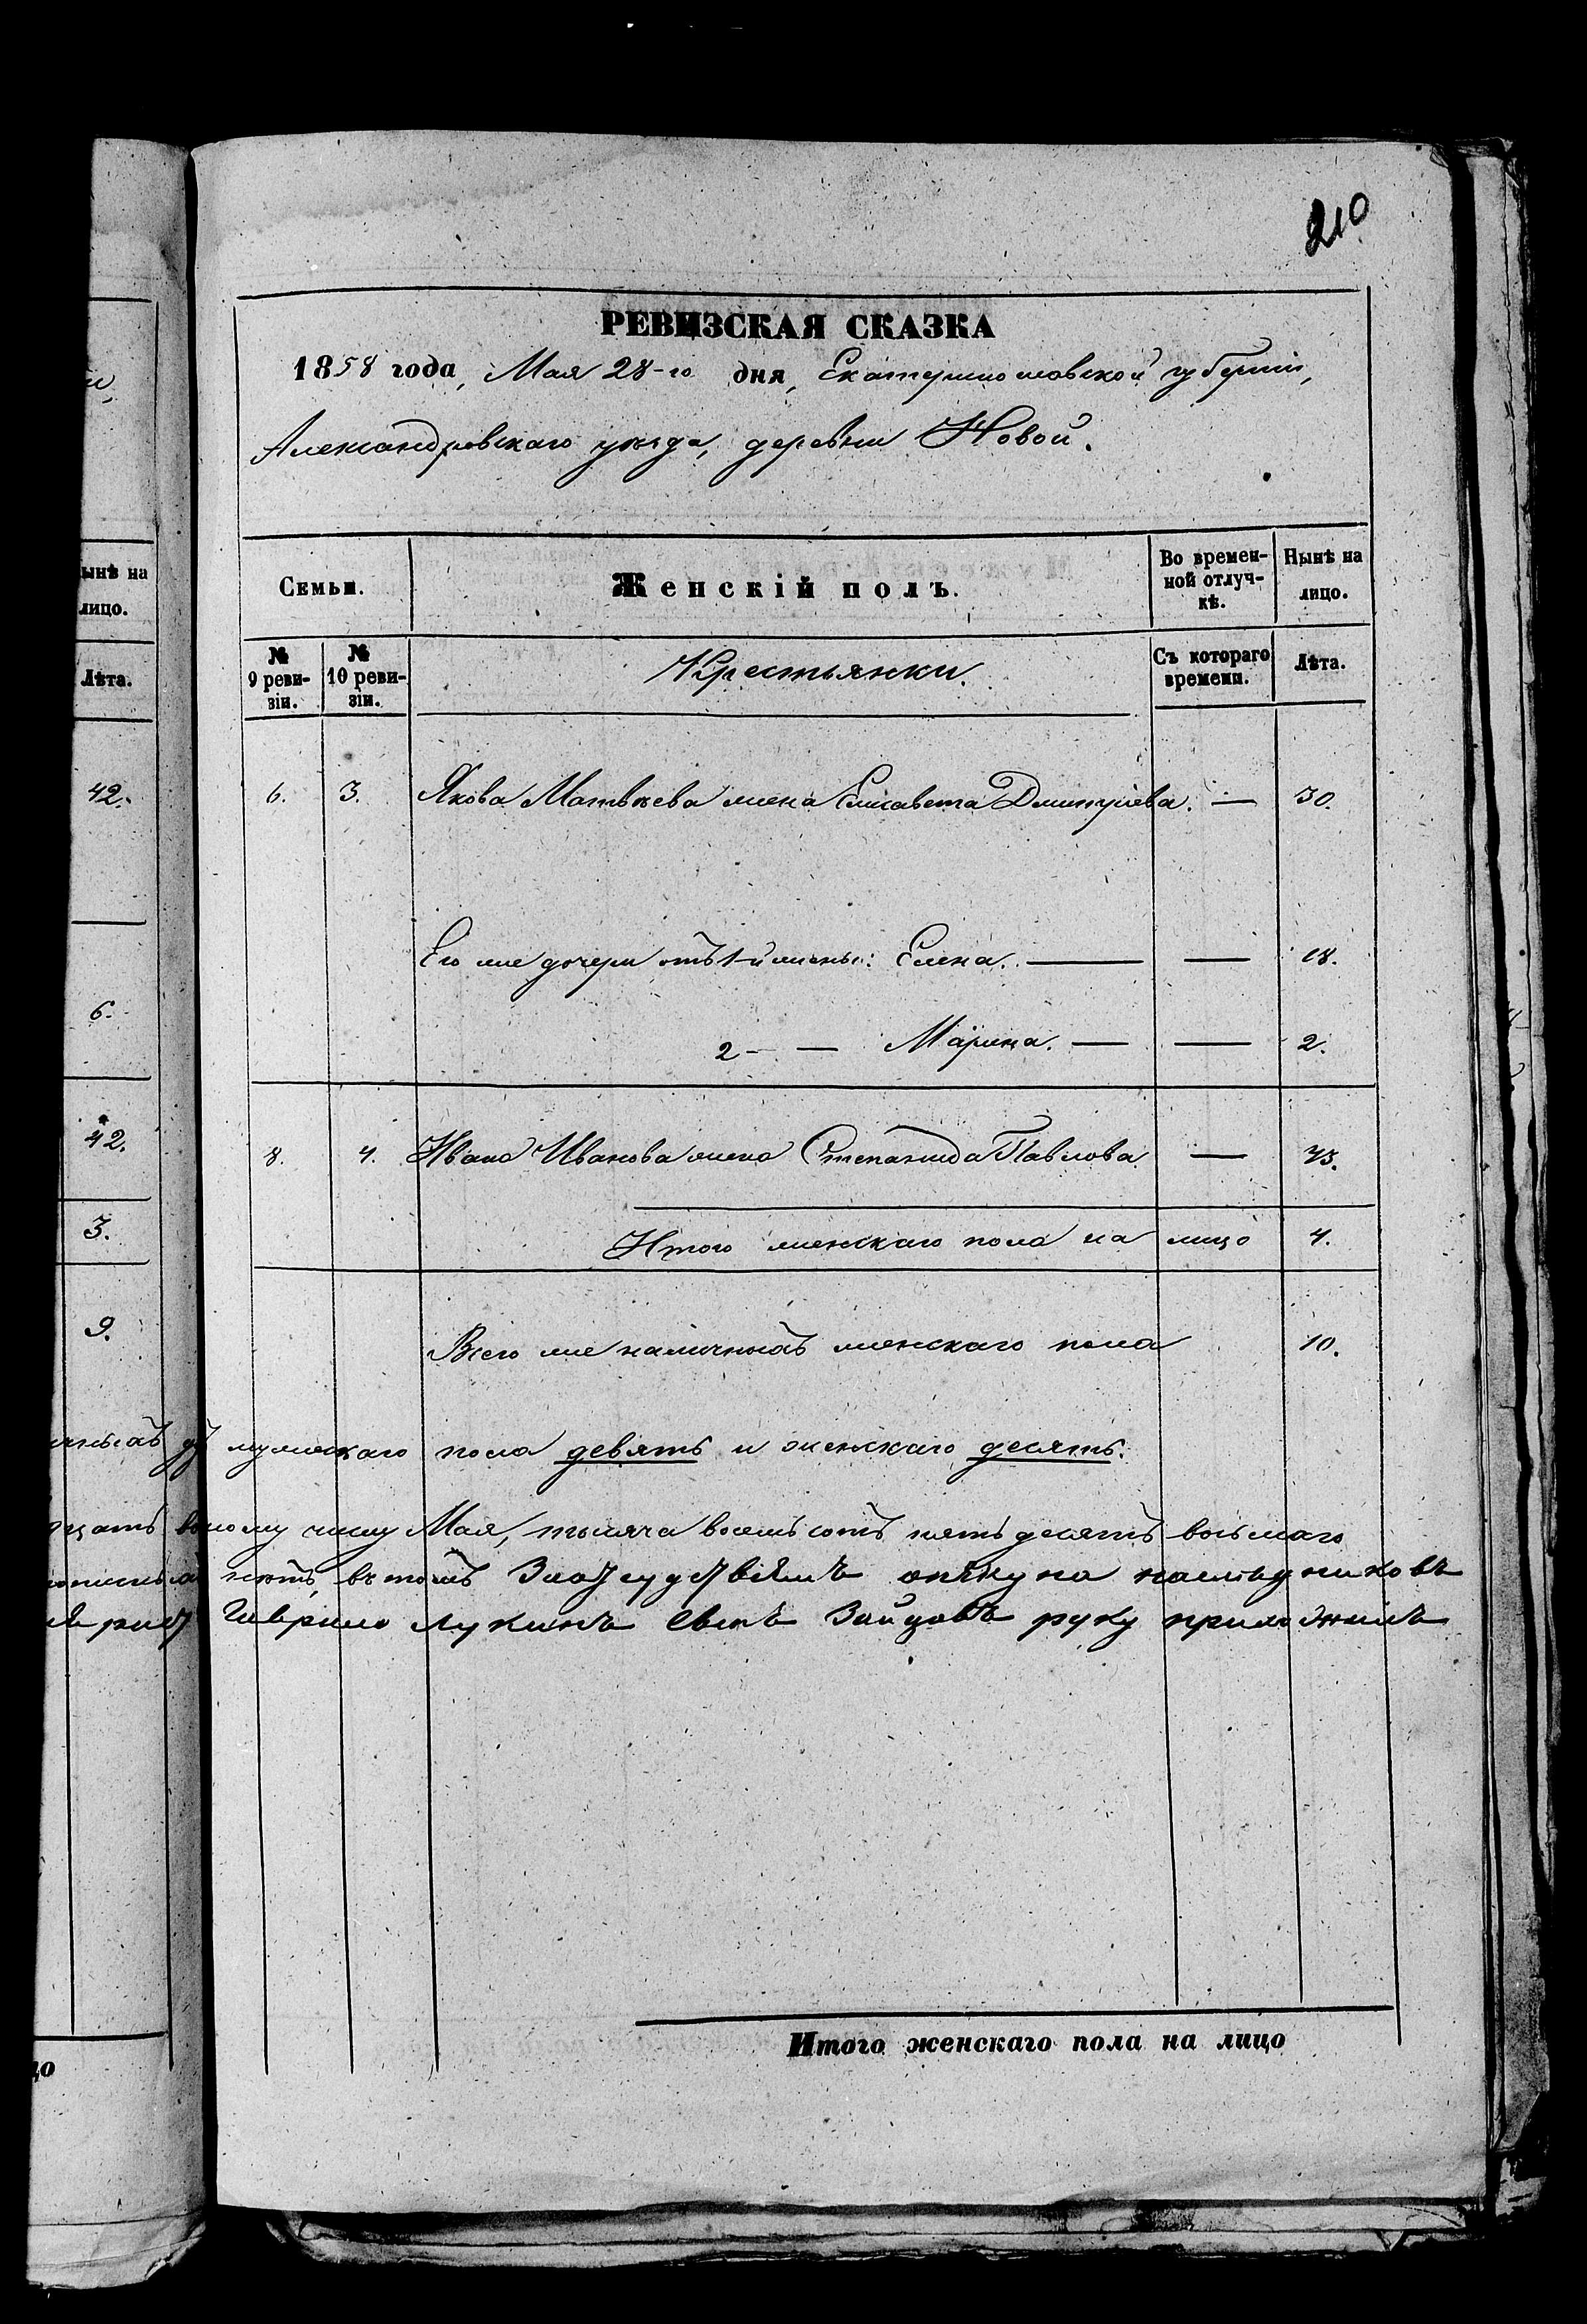 210
РЕВИЗСКАЯ СКАЗКА
1858 года, Мая 28-го дня, Екатеринославской губерніи,
Александровскаго уѣзда, деревни Новой.
ынѣ на
лицо.
Лѣта.
Семьи.
Женскій полъ.
Во времен-
ной отлуч-
кѣ.
Нынѣ на
лицо.
№
9 реви-
зіи.
№
10 реви-
зіи.
Крестьянки.
Съ котораго
времени.
Лѣта.
42.
6. 3. Якова Матвѣева жена Елисавета Дмитріева. — 30.
Его же дочери отъ 1-й жены: Елена. — — 18.
6.
2 - — Марина. — — 2.
42.
8. 4. Ивана Иванова жена Степанида Павлова — 43.
3.
Итого женскаго пола на лицо 4.
9.
Всего же наличныхъ женскаго пола 10.
мужескаго пола девять и женскаго десять.
числу Мая, тысяча восемьсотъ пятьдесятъ восьмаго
въ томъ опікуна наследниковъ
Гаврило Лукинъ сынъ Зайцовъ руку приложилъ
цо
Итого женскаго пола на лицо